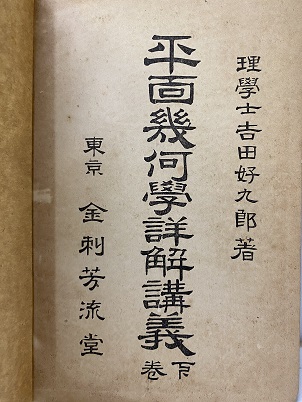 理學士吉田好九郎著
平面幾何學詳解講義 下卷
東京 金刺芳流堂